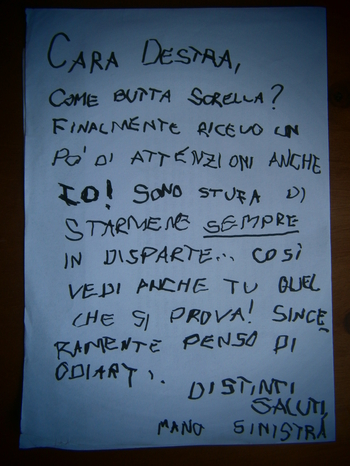 CARA DESTRA,
COME BUTTA SORELLA?
FINALMENTE RICEVO UN
PO' DI ATTENZIONI ANCHE
IO! SONO STUFA DI
STARMENE SEMPRE
IN DISPARTE... COSÌ
VEDI ANCHE TU QUEL
CHE SI PROVA! SINCE
RAMENTE PENSO DI
ODIARTI.
DISTINTI
SALUTI,
MANO SINISTRA